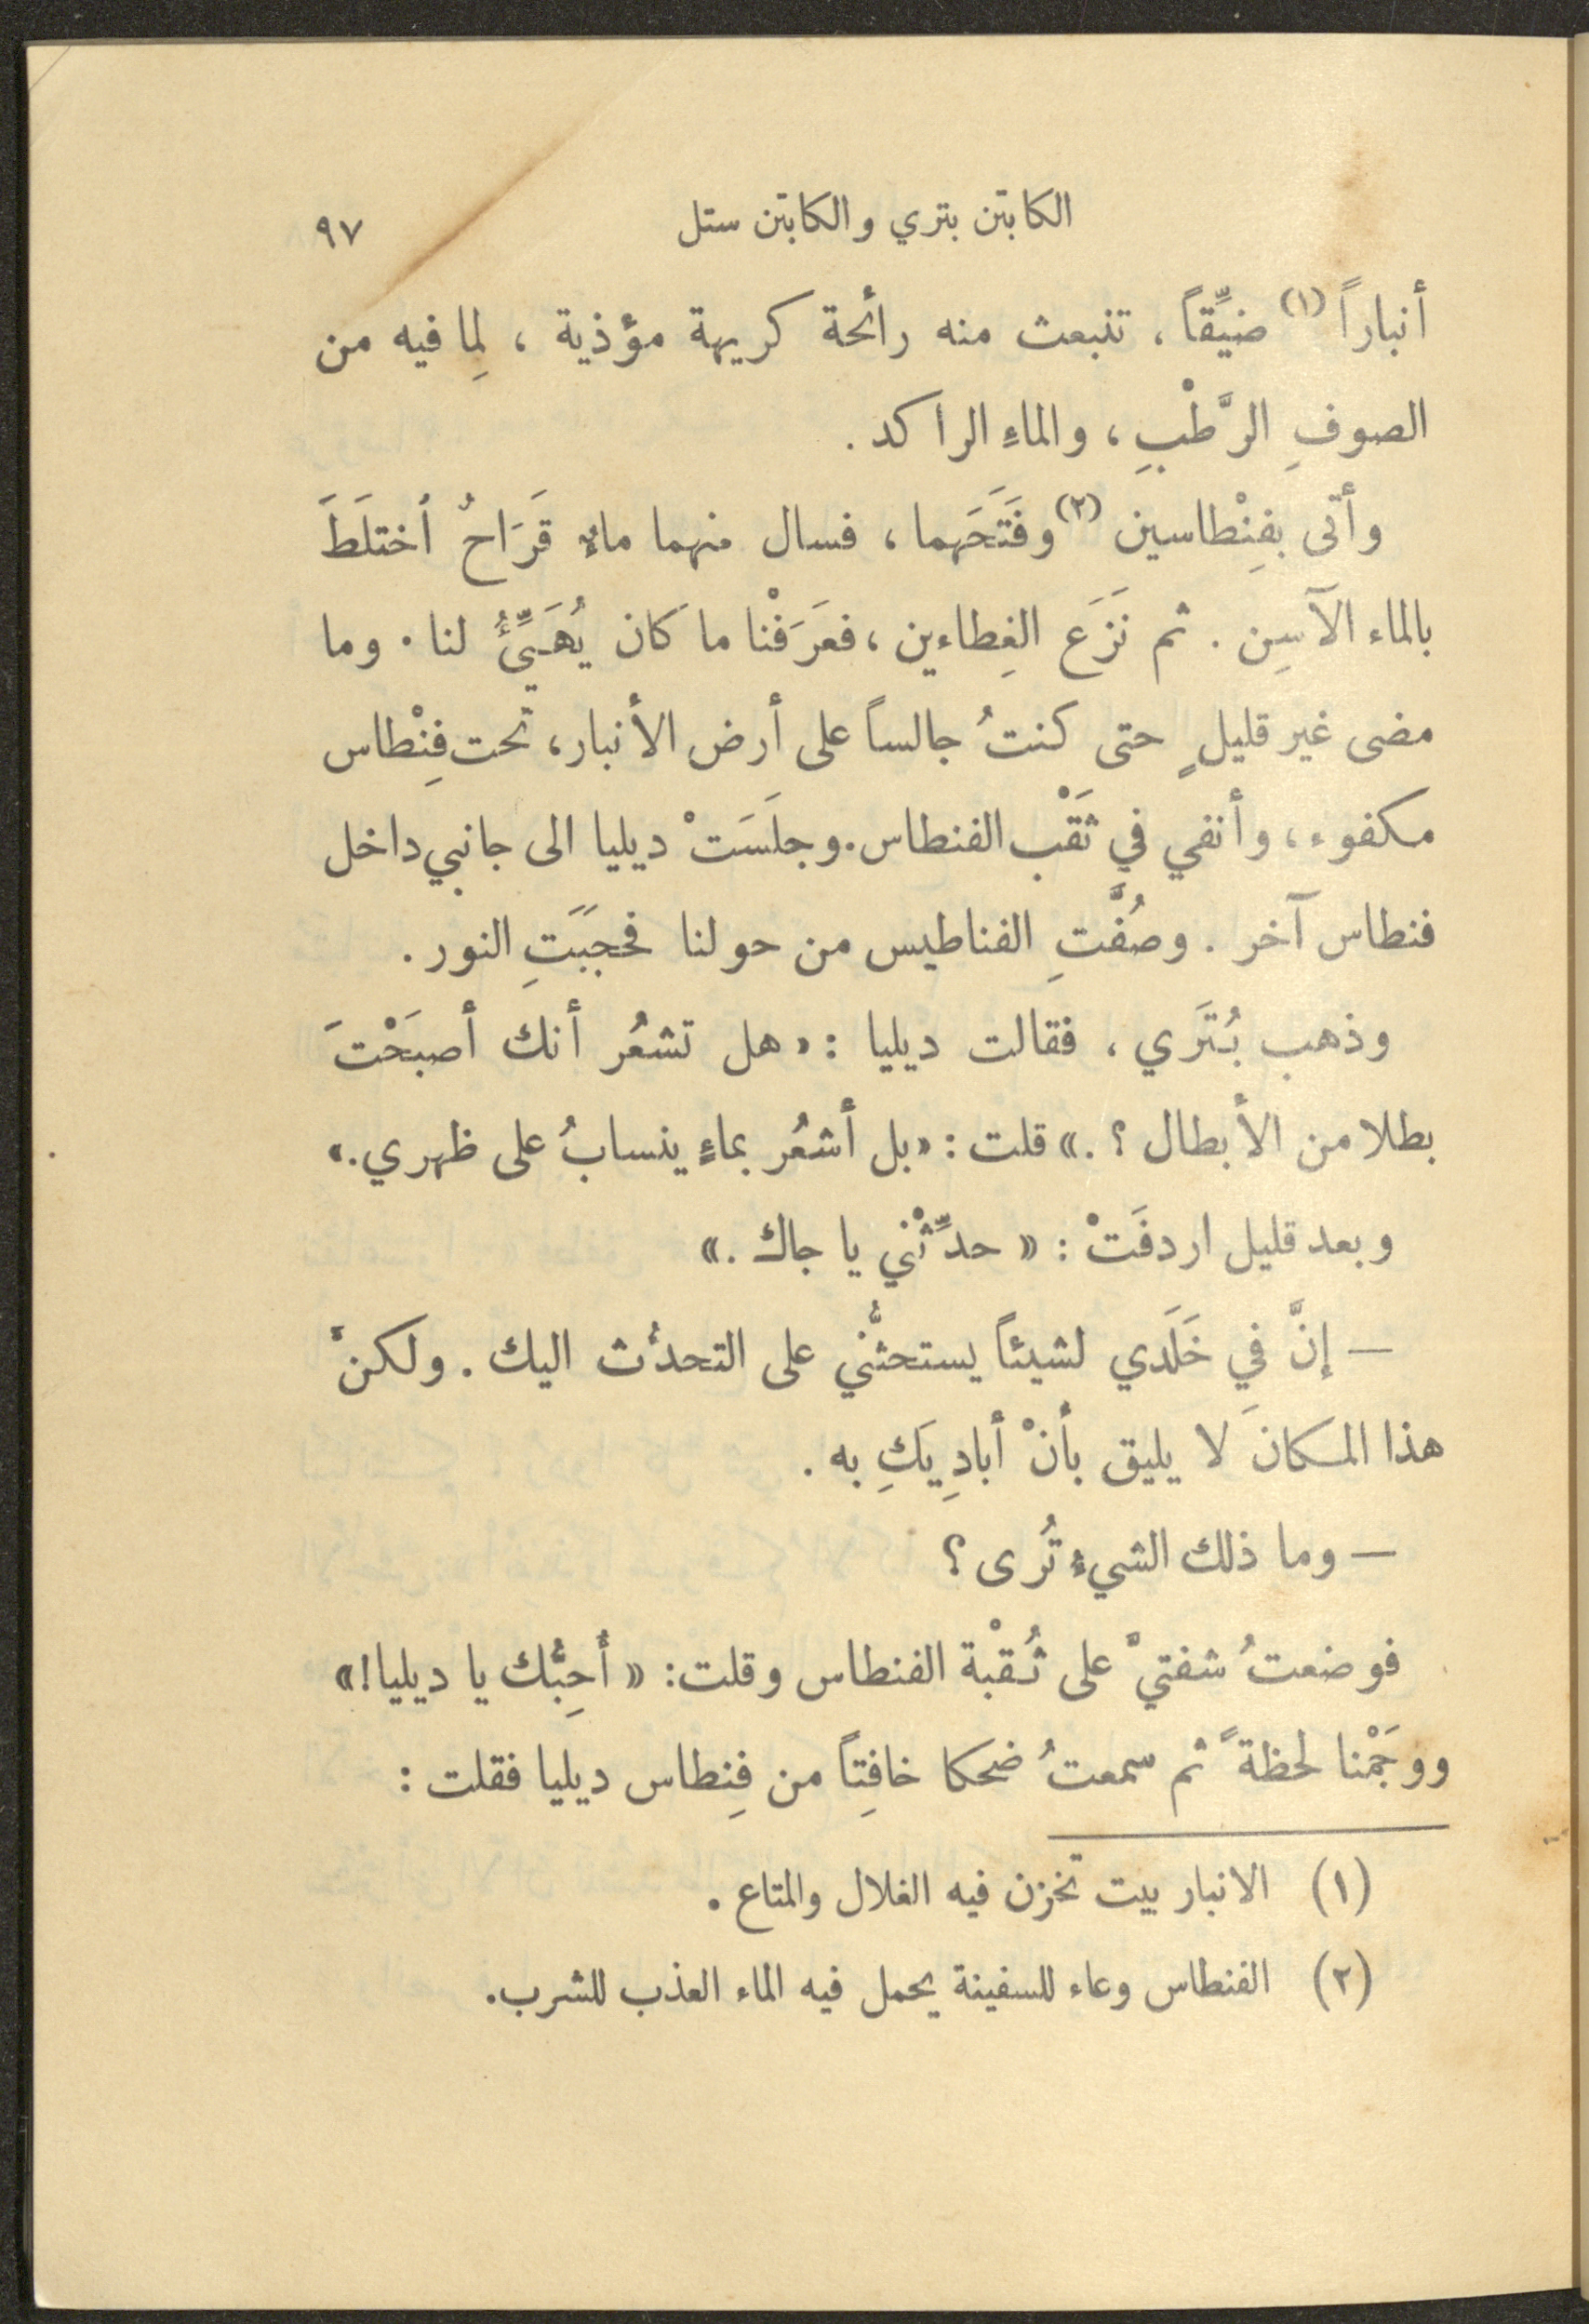 الكابتن بتري والكابتن ستل ٩٧
أنباراً (١) ضيِّقاً ، تنبعث منه رأئحة كريهة مؤذية ، لِما فيه من
الصوفِ الرَّطْبِ ، والماءِ الراكد .
وأتى بفِنْطاسين (٢) وفَتَحَهما ، فسال منهما ماءٌ قَرَاحٌ أختلَطَ
بالماء الآسِن . ثم نَزَع الغِطاءين ، فعَرَفْنا ما كان يُهَيِّئُ لنا . وما
مضى غير قليلٍ حتى كنتُ جالساً على أرض الأنبار ، تحت فِنْطاس
مكفوء ، وأنفي في ثَقْب الفنطاس . وجلَسَتْ ديليا الى جانبي داخل
فنطاس آخر . وصُفَّتِ الفناطيس من حولنا فحجبَتِ النور .
وذهب بُتَري ، فقالت ديليا : « هل تشعُر أنك أصبَحْتَ
بطلا من الأبطال ؟ . » قلت : « بل أشعُر بماءٍ ينسابُ على ظهري . »
وبعد قليل اردفَتْ : « حدِّثْني يا جاك . »
— إنَّ في خَلَدي لشيئاً يستحثُّني على التحدُث اليك . ولكنَّ
هذا المكانَ لا يليق بأنْ أبادِيَكِ به .
— وما ذلك الشيءُ تُرى ؟
فوضعتُ شفتيَّ على ثُقْبة الفنطاس وقلت : « أُحِبُّك يا ديليا ! »
ووجَمْنا لحظةً ثم سمعتُ ضحكا خافِتاً من فِنطاس ديليا فقلت :
(١) الانبار بيت تخزن فيه الغلال والمتاع .
(٢) الفنطاس وعاء للسفينة يحمل فيه الماء العذب للشرب .